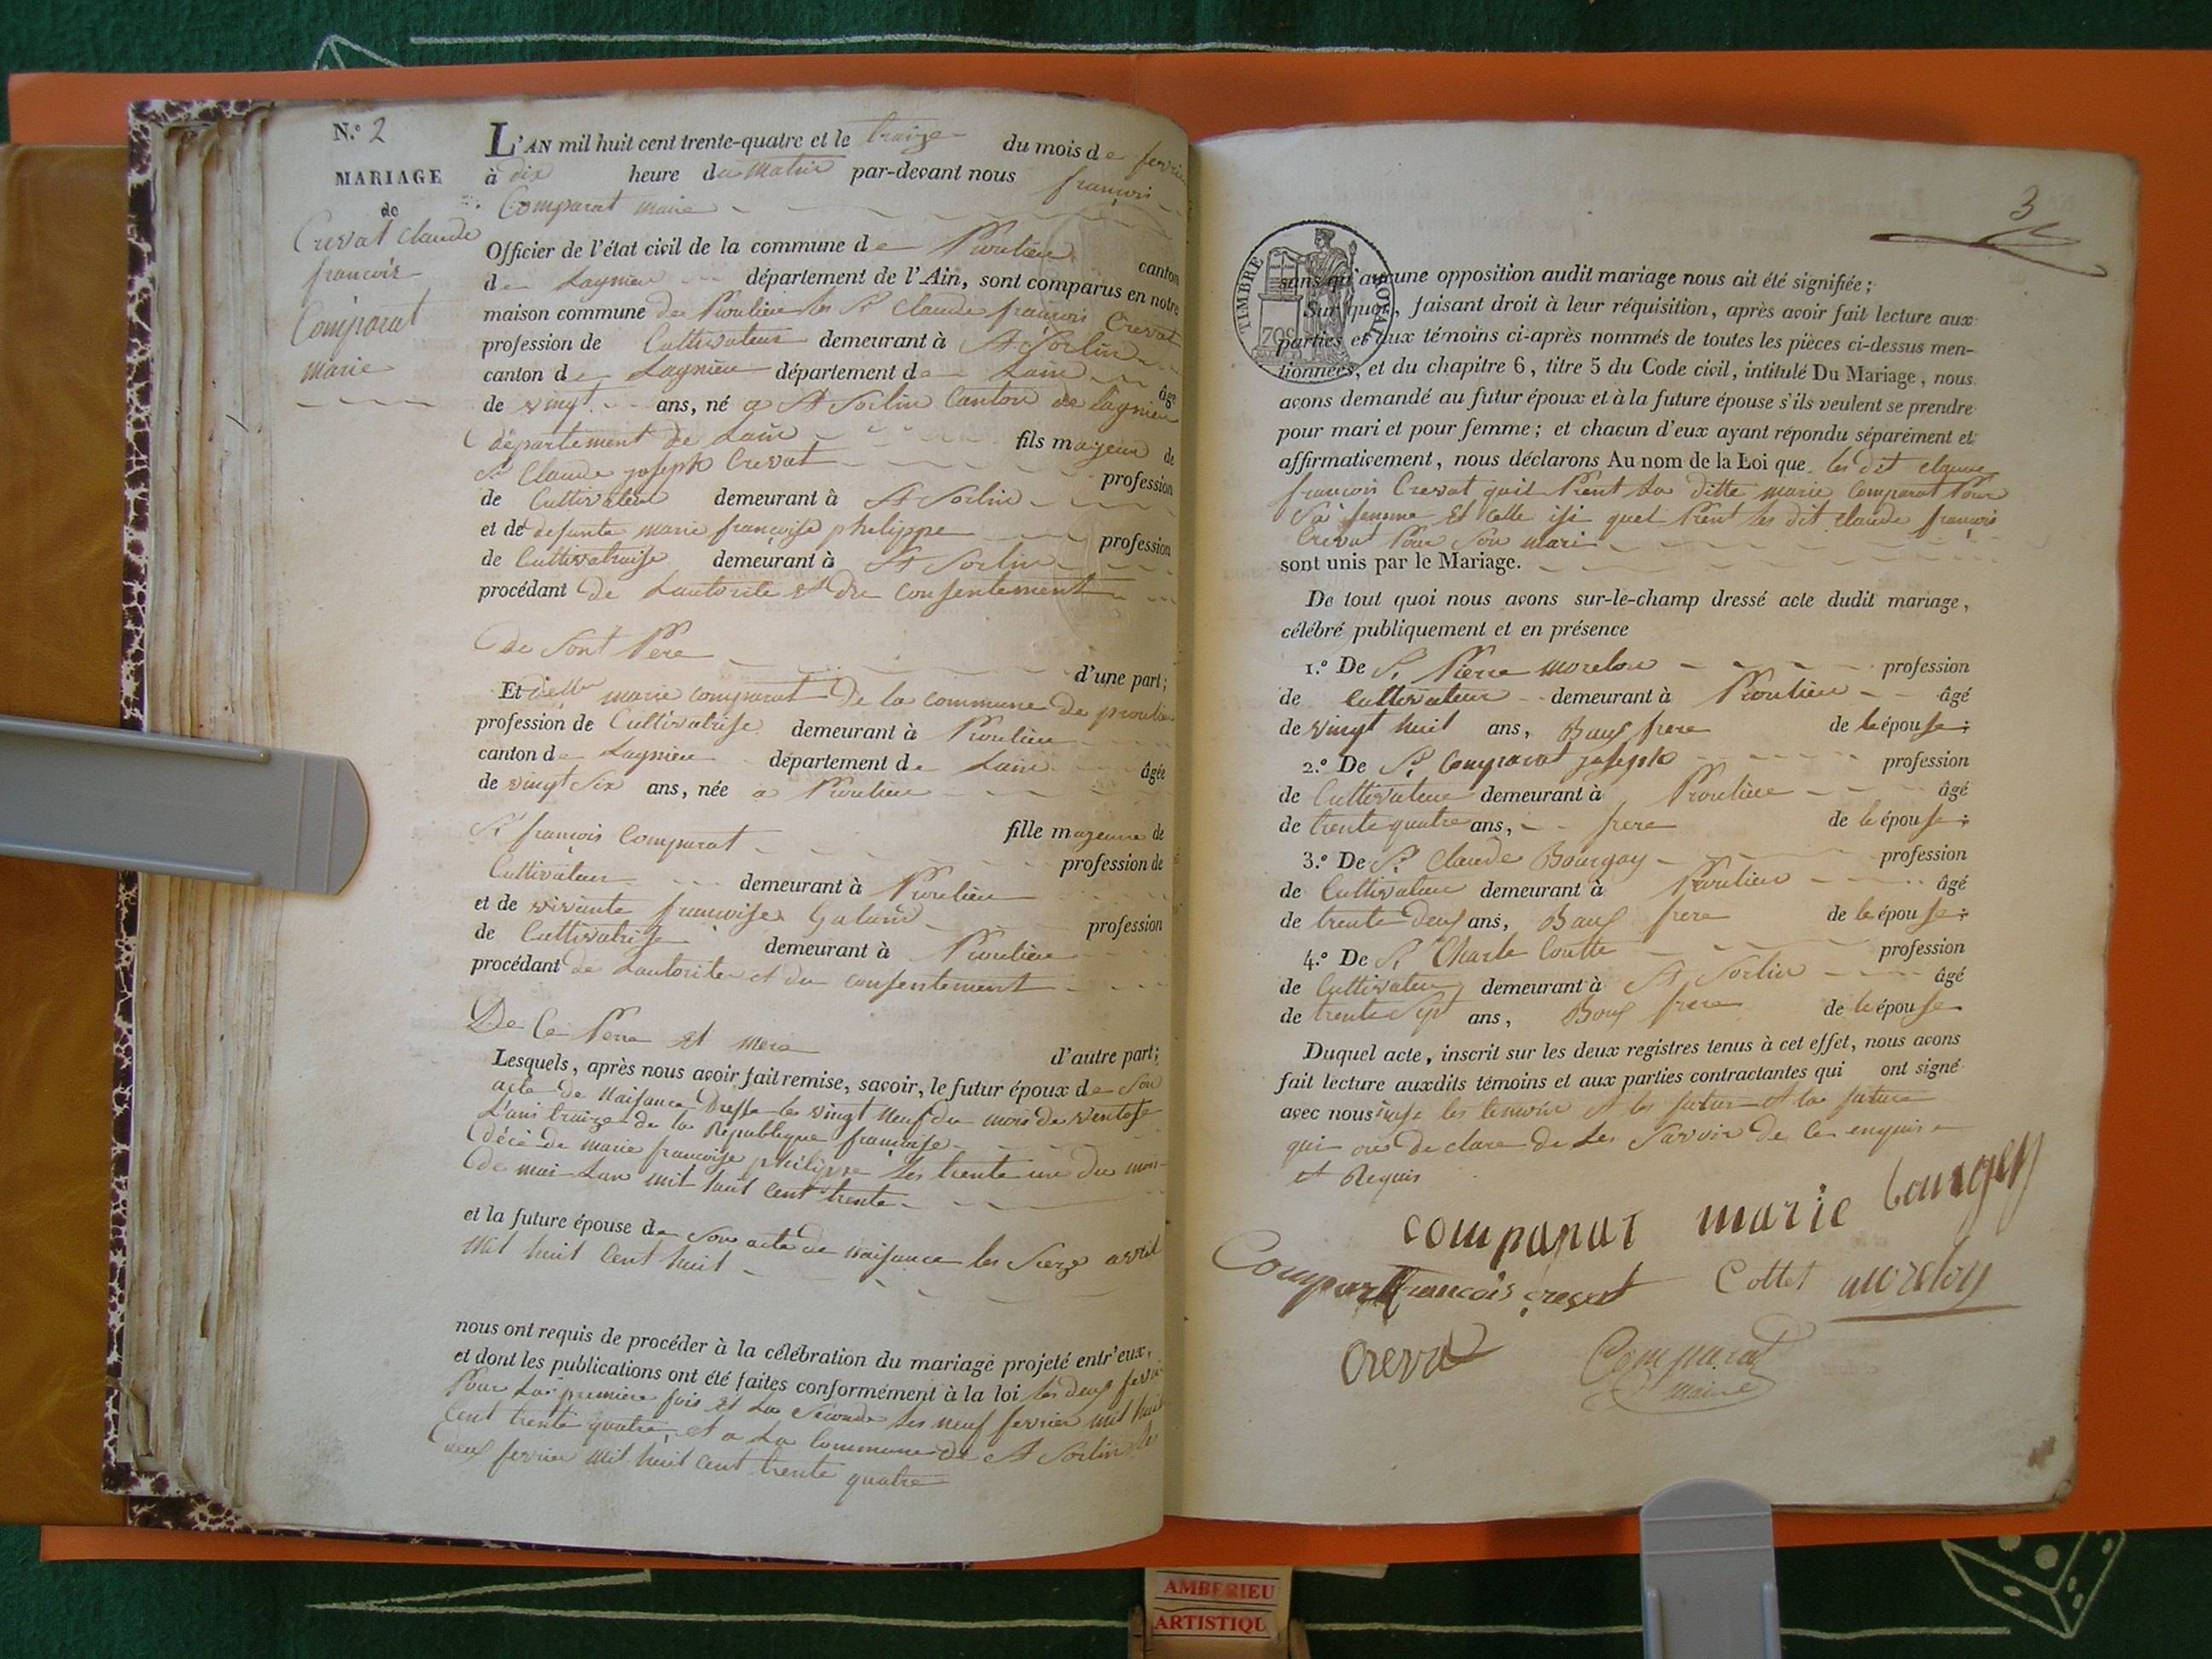 N.º 2
MARIAGE
de
Crevat Claude
francois
Comparat
marie
L'AN mil huit cent trente-quatre et le traize du mois de fevrier
à dix heure du matin par-devant nous françois
Comparat maire
Officier de l'état civil de la commune de Proulieu canton
de Lagnieu département de l'Ain, sont comparus en notre
maison commune de Proulieu les Sr Claude françois Crevat
profession de Cultivateur demeurant à St Sorlin
canton de Lagnieu département de Lain âgé
de vingt ans, né a St Sorlin Canton de Lagnieu
département de Lain fils majeur de
Sr Claude joseph Crevat profession
de Cultivateur demeurant à St Sorlin
et de defunte marie françoise philippe profession
de Cultivatraise demeurant à St Sorlin
procédant de Lautorite et du consentement
de Sont Pere d'une part;
Et delle marie comparat de la commune de proulieu
profession de Cultivatrise demeurant à Proulieu
canton de Lagnieu département de Lain âgée
de vingt Six ans, née a Proulieu
fille majeure de
Sr françois Comparat profession de
Cultivateur demeurant à Proulieu
et de vivante françoise Galand profession
de Cultivatrise demeurant à Proulieu
procédant de Lautorite et du consentement
De Ce Perre et mere d'autre part;
Lesquels, après nous avoir fait remise, savoir, le futur époux de Son
acte de Naisance Dresse les vingt neuf du mois de ventose
L'ani traize de la Republique françoise
décé de marie francoise philippe Les trente un du mois
de mai Lan mil huit Cent trente
et la future épouse de Son acte de naisance les Seize avril
mil huit Cent huit
nous ont requis de procéder à la célébration du mariage projeté entr'eux,
et dont les publications ont été faites conformément à la loi les deux fevrier
Pour La premiere fois et La Seconde Les neuf fevrier mil huit
Cent trente quatre, et a La Commune de St Sorlin les
deux fevrier mil huit Cent trente quatre
3
TIMBRE ROYAL
70C
sans qu'aucune opposition audit mariage nous ait été signifiée;
Sur quoi, faisant droit à leur réquisition, après avoir fait lecture aux
parties et aux témoins ci-après nommés de toutes les pièces ci-dessus men-
tionnées, et du chapitre 6, titre 5 du Code civil, intitulé Du Mariage, nous
avons demandé au futur époux et à la future épouse s'ils veulent se prendre
pour mari et pour femme; et chacun d'eux ayant répondu séparément et
affirmativement, nous déclarons Au nom de la Loi que les dit claude
françois Crevat quil Prent La ditte marie Comparat Pour
Sa femme Et celle isi quel Prent les dit claude françois
Crevat Pour Son mari
sont unis par le Mariage.
De tout quoi nous avons sur-le-champ dressé acte dudit mariage,
célébré publiquement et en présence
1.º De Sr Pierre morelon profession
de Cultivateur demeurant à Proulieu âgé
de vingt huit ans, Baux frere de lépouse;
2.º De Sr Comparat joseph profession
de Cultivateur demeurant à Proulieu âgé
de trente quatre ans, frere de lépouse;
3.º De Sr Claude Bourgay profession
de Cultivateur demeurant à Proulieu âgé
de trente deux ans, Baux frere de lépouse;
4.º De Sr Charle Coutte profession
de Cultivateur demeurant à St Sorlin âgé
de trente Sept ans, Boux frere de lépouse
Duquel acte, inscrit sur les deux registres tenus à cet effet, nous avons
fait lecture auxdits témoins et aux parties contractantes qui ont signé
avec nous les temoin et les futur et la future
qui on De clare de Les Savoir de Ce enquise
et Requis
comparat marie bourgey
Comparat francois crevat Cottet morelon
Creva Comparat
maire
AMBERIEU
ARTISTIQU